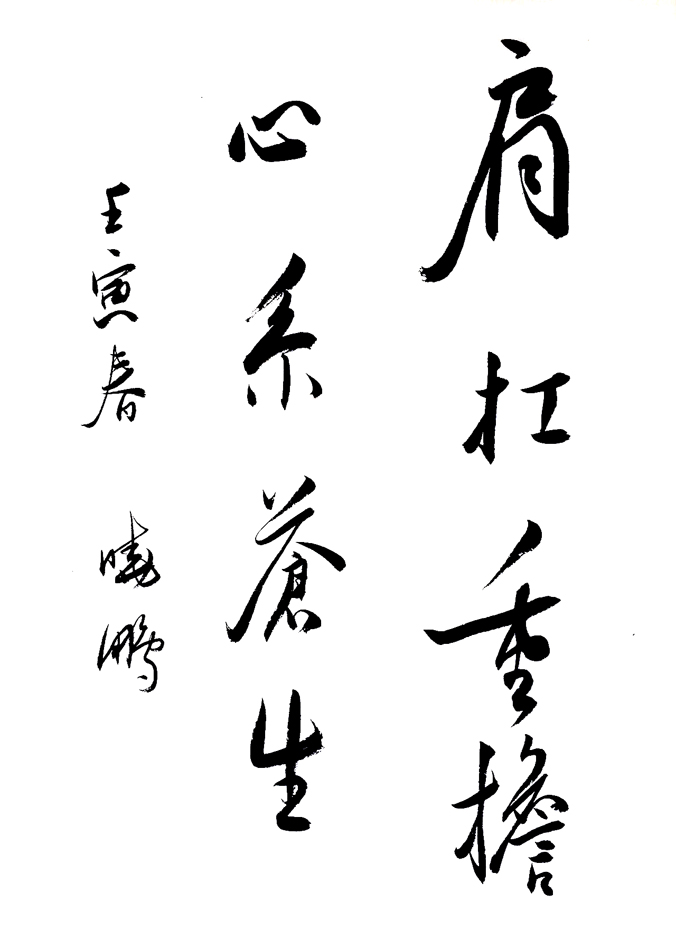 肩扛重擔
心系蒼生
壬寅春 曉鵬